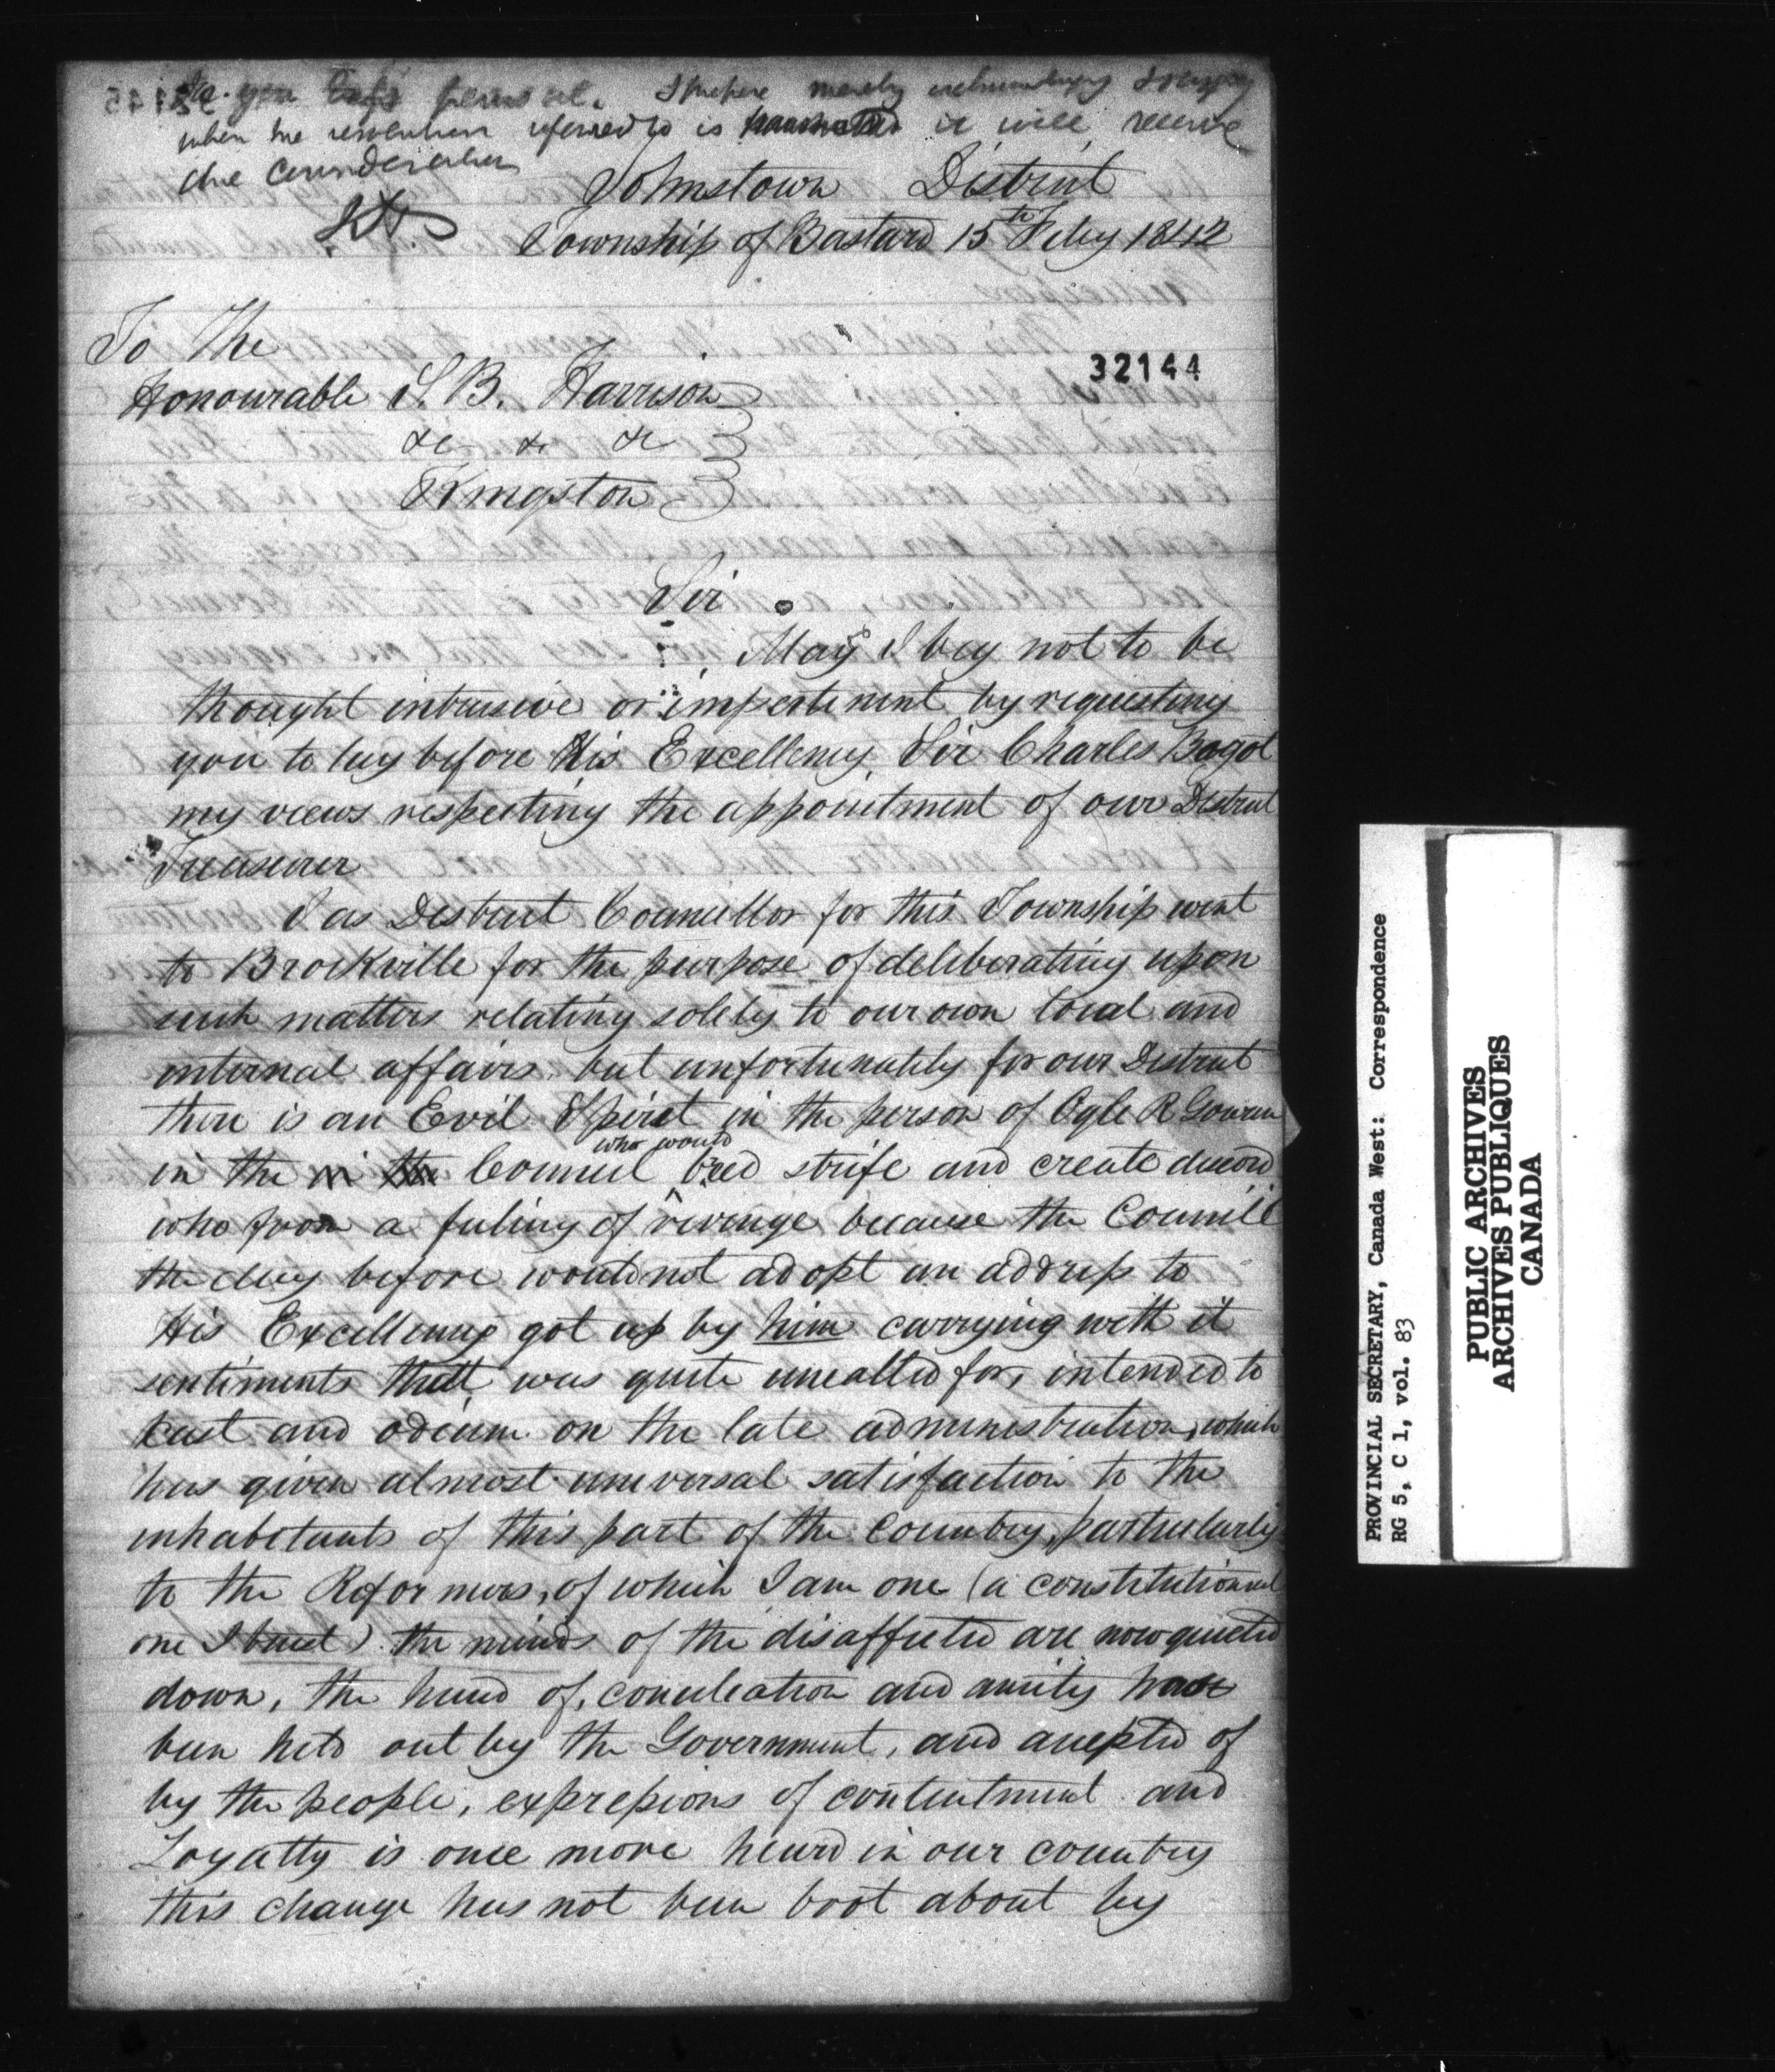 for your perusal. I propose merely acknowledging & saying
when the resolution referred to is transmitted it will receive
due consideration
Johnstown District
Township of Bastard 15th Feby 1842
To The
32144
Honourable S. B. Harrison
&c & &c
Kingston
Sir
May I beg not to be
thought intrusive or impertinent by requesting
you to lay before His Excellency Sir Charles Bagot
my views respecting the appointment of our District
Treasurer
I as District Councillor for this Township went
to Brockville for the purpose of deliberating upon
such matters relating solely to our own local and
internal affairs, but unfortunately for our District
there is an Evil Spirit in the person of Ogle R Gowan
in the in the Council who would bred strife and create discord
who from a feeling of revenge because the Council
the day before would not adopt an address to
His Excellency got up by him carrying with it
sentiments that was quite uncalled for, intended to
cast and odium on the late administration, which
has given almost universal satisfaction to the
inhabitants of this part of the Country, particularly
to the Reformers, of which I am one (a constitutional
one I trust) the minds of the disaffected are now quieted
down, the hand of, conciliation and amity has
been held out by the Government, and accepted of
by the people, expressions of contentment and
Loyalty is once more heard in our country
this change has not been brot about by
PROVINCIAL SECRETARY, Canada West: Correspondence
RG 5, C 1, vol. 83
PUBLIC ARCHIVES
ARCHIVES PUBLIQUES
CANADA